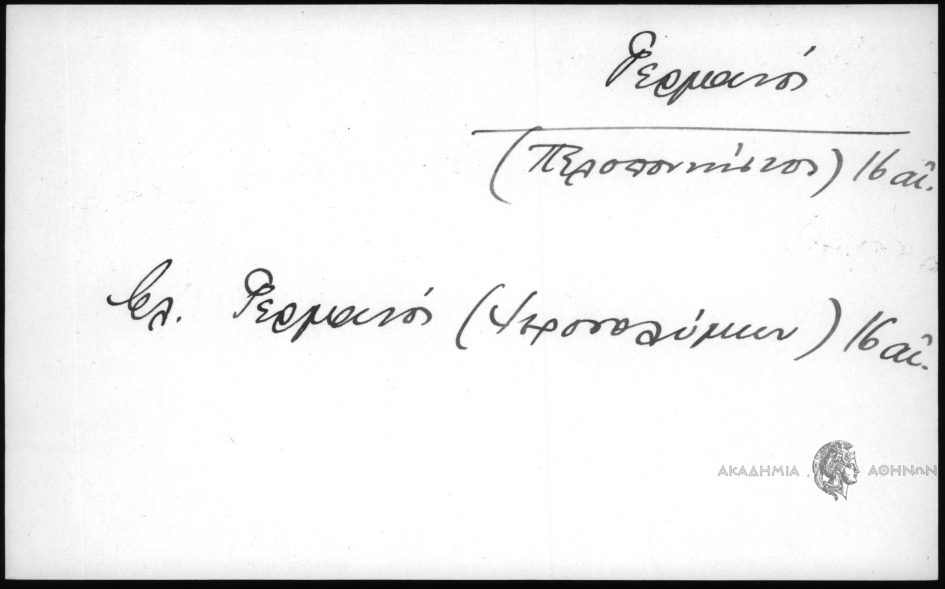 Γερμανός
(Πελοποννήσιος) 16 αἰ.
βλ. Γερμανός (Ἱεροσολύμων) 16 αἰ.
ΑΚΑΔΗΜΙΑ ΑΘΗΝΩΝ